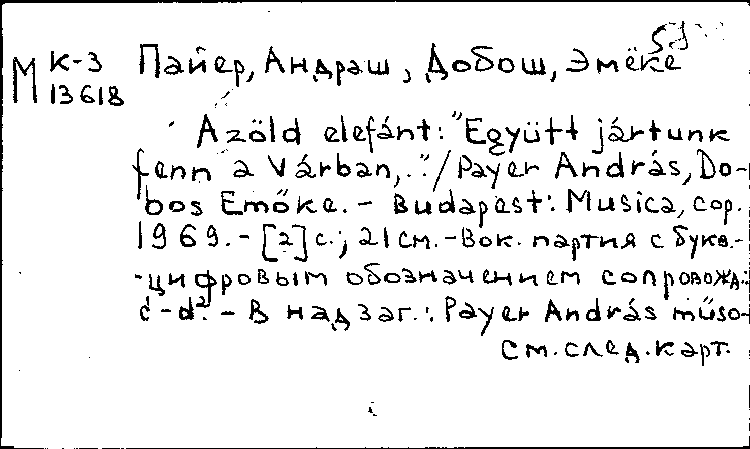 М К-3 13618 Пайер, Андраш, Добош, Эмёке
A zöld elefánt: "Együtt jártunk
fenn a Várban,.."/Payer András, Do-
bos Emőke. - Budapest: Musica, cop.
1969. - [2] с.; 21 см. - Вок. партия с букв.-
-цифровым обозначением сопровожд.:
c' - d². - В надзаг.: Payer András műso-
см. след. карт.